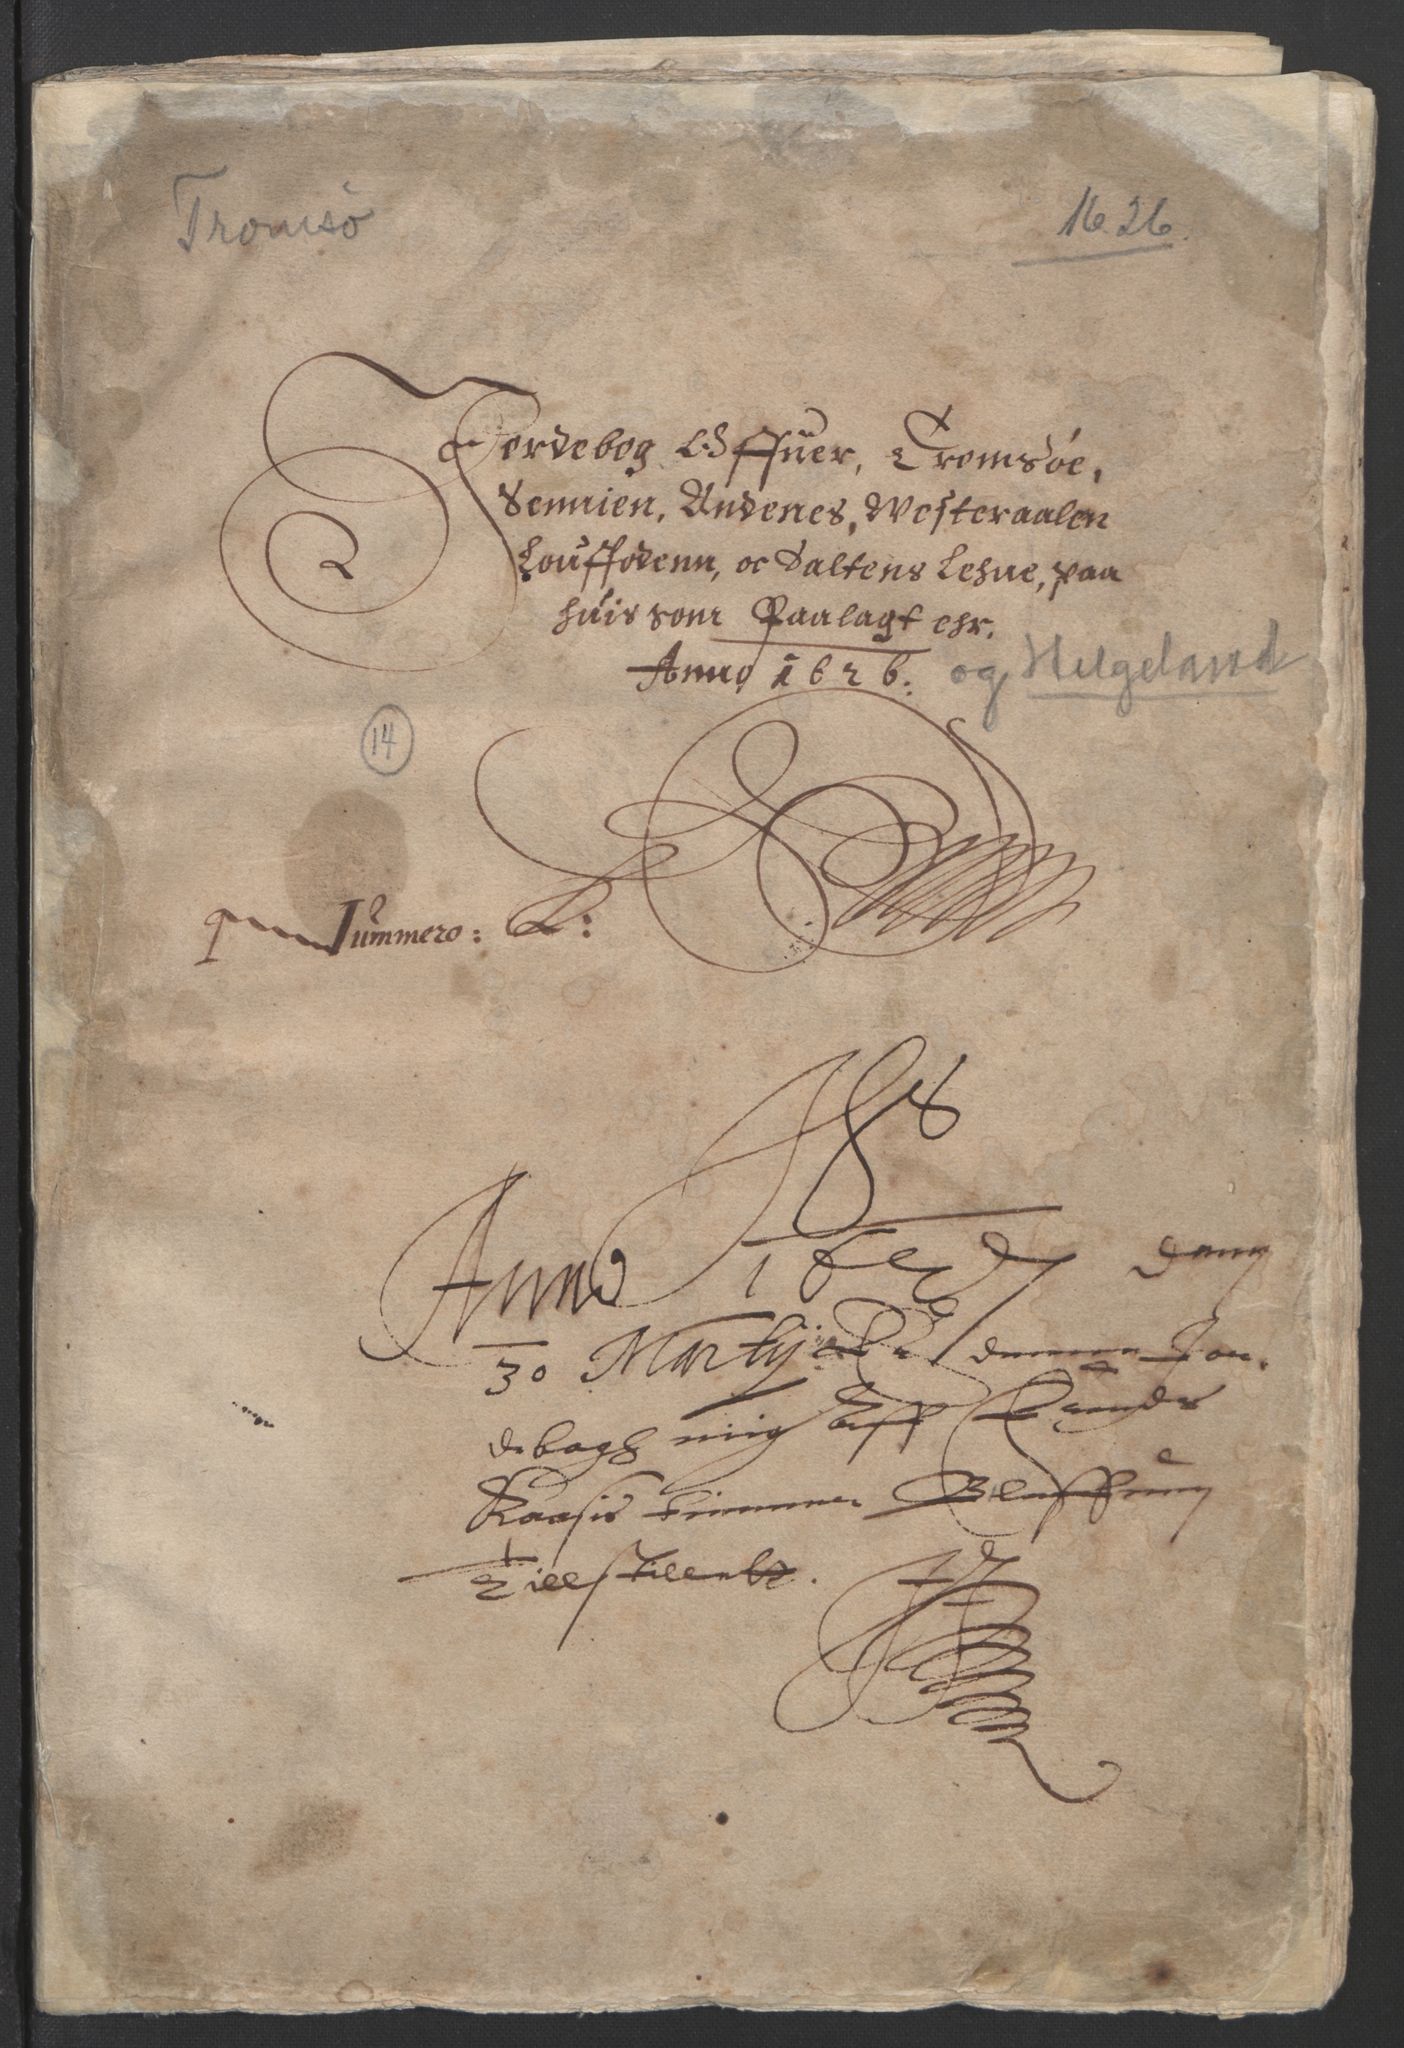 Tromsö
1626.
Jordebog Offuer, Tromsøe,
Sennien, Andenes, Westeraalen
Louffodenn, oc Saltens Lehne, paa
huis som Paalagt ehr.
Anno 1626. og Helgeland
14
Nummero: L:
Anno 1627 denn
30 Martij er denne Jor
debogh mig aff
Raasis Befhring
tillstilledt.